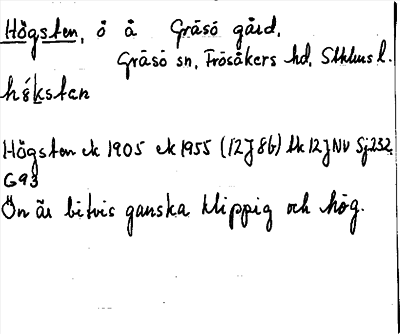 Högsten, ö å Gräsö gård,
Gräsö sn, Frösåkers hd, Sthlms l.
hö́ksten
Högsten ek 1905 ek 1955 (12J8b) lk 12JNV Sj232
G93
Ön är bitvis ganska klippig och hög.